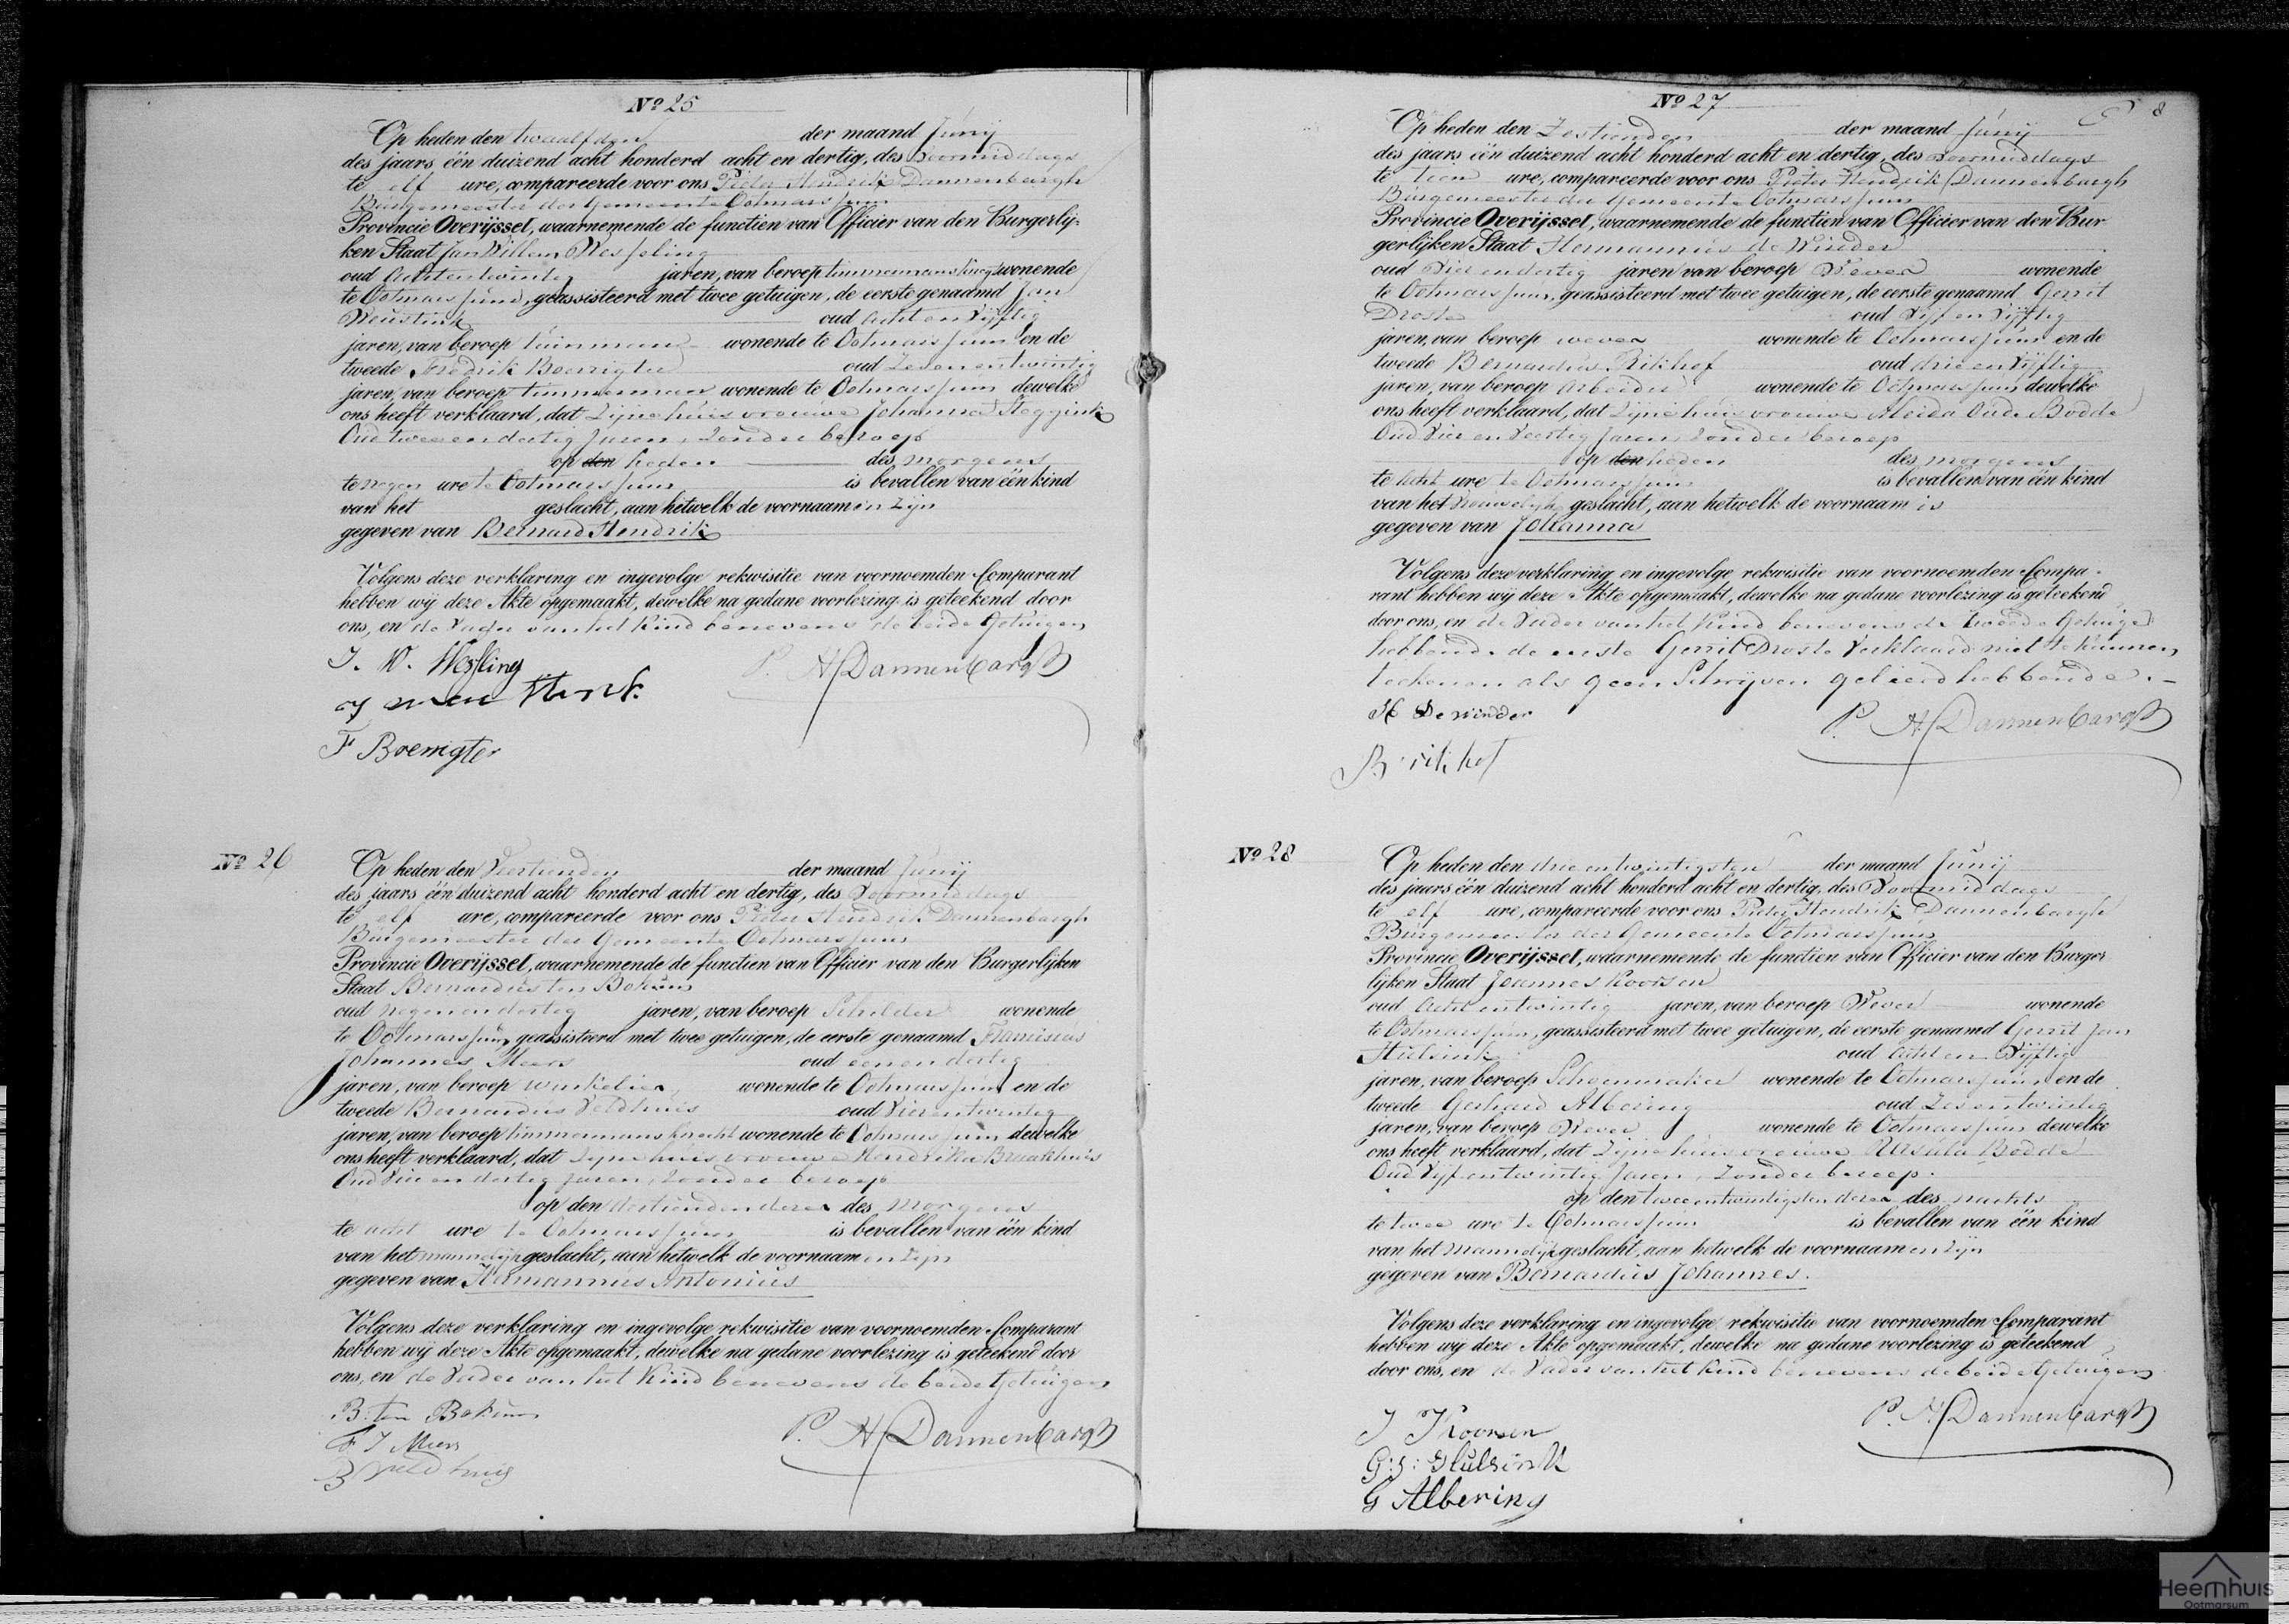 No 25
Op heden den twaalfden der maand Junij
des jaars één duizend acht honderd acht en dertig, des voormiddags
te elf ure, compareerde voor ons Pieter Hendrik Dannenbargh
Burgemeester der Gemeente Ootmarssum
Provincie Overijssel, waarnemende de functien van Officier van den Burgerlij-
ken Staat Jan Willem Wesseling
oud achtentwintig jaren, van beroep timmermansknegt wonende
te Ootmarssum, geassisteerd met twee getuigen, de eerste genaamd Jan
oud acht en Vijftig
jaren, van beroep tuinman wonende te Ootmarssum en de
tweede Fredrik Boerrigter oud Zevenentwintig
jaren, van beroep timmerman wonende te Ootmarssum dewelke
ons heeft verklaard, dat Zijne huisvrouwe Johanna Steggink
Oud twee en dertig Jaren, Zonder beroep
op den heden des morgens
te negen ure te Ootmarssum is bevallen van één kind
van het geslacht, aan hetwelk de voornaamen zijn
gegeven van Bernard Hendrik
Volgens deze verklaring en ingevolge rekwisitie van voornoemden Comparant
hebben wij deze Akte opgemaakt, dewelke na gedane voorlezing is geteekend door
ons, en de Vader van het Kind benevens de beide Getuigen
J. W. Wessling
P. H. Dannenbargh
F Boerrigter
No 26
Op heden den Veertienden der maand Junij
des jaars één duizend acht honderd acht en dertig, des Voormiddags
te elf ure, compareerde voor ons Pieter Hendrik Dannenbargh
Burgemeester der Gemeente Ootmarssum
Provincie Overijssel, waarnemende de functien van Officier van den Burgerlijken
Staat Bernardus ten Bokum
oud negenendertig jaren, van beroep Schilder wonende
te Ootmarssum geassisteerd met twee getuigen, de eerste genaamd Franciscus
Johannes Meers oud eenendertig
jaren, van beroep winkelier wonende te Ootmarssum en de
tweede Bernardus Veldhuis oud Vierentwintig
jaren, van beroep timmermansknecht wonende te Ootmarssum dewelke
ons heeft verklaard, dat Zijne huisvrouwe Hendrika Braakhuis
Oud Vier en dertig jaren, Zonder beroep
op den dertienden dezer des morgens
te acht ure te Ootmarssum is bevallen van één kind
van het mannelijk geslacht, aan hetwelk de voornaamen zijn
gegeven van Hermannus Antonius
Volgens deze verklaring en ingevolge rekwisitie van voornoemden Comparant
hebben wij deze Akte opgemaakt, dewelke na gedane voorlezing is geteekend door
ons, en de Vader van het Kind benevens de beide Getuigen
B: ten Bokum
P. H. Dannenbargh
F J Meers
B Veldhuis
8
No 27
Op heden den Zestienden der maand Junij
des jaars één duizend acht honderd acht en dertig, des voormiddags
te tien ure, compareerde voor ons Pieter Hendrik Dannenbargh
Burgemeester der Gemeente Ootmarssum
Provincie Overijssel, waarnemende de functien van Officier van den Bur-
gerlijken Staat Hermannus de Winder
oud Vier en dertig jaren van beroep Wever wonende
te Ootmarssum, geassisteerd met twee getuigen, de eerste genaamd Gerrit
Droste oud Vijf en Vijftig
jaren, van beroep wever wonende te Ootmarssum en de
tweede Bernardus Rikhof oud drie en Vijftig
jaren, van beroep Arbeider wonende te Ootmarssum dewelke
ons heeft verklaard, dat Zijne huisvrouwe Aleida Oude Bodde
Oud Vier en Veertig Jaren, Zonder beroep
op den heden des morgens
te acht ure te Ootmarssum is bevallen van één kind
van het vrouwelijk geslacht, aan hetwelk de voornaam is
gegeven van Johanna
Volgens deze verklaring en ingevolge rekwisitie van voornoemden Compa-
rant hebben wij deze Akte opgemaakt, dewelke na gedane voorlezing is geteekend
door ons, en de Vader van het Kind benevens de tweede Getuige
hebbende de eerste Gerrit Droste Verklaard niet te kunnen
teekenen als geen Schrijven geleerd hebbende.
H De winder
P. H. Dannenbargh
B rikhof
No 28
Op heden den drie entwintigsten der maand Junij
des jaars één duizend acht honderd acht en dertig, des Voormiddags
te elf ure, compareerde voor ons Pieter Hendrik Dannenbargh
Burgemeester der Gemeente Ootmarssum
Provincie Overijssel, waarnemende de functien van Officier van den Burger
lijken Staat Joannes Koorsen
oud acht entwintig jaren, van beroep Wever wonende
te Ootmarssum, geassisteerd met twee getuigen, de eerste genaamd Gerrit Jan
Hulsink oud acht en Vijftig
jaren, van beroep Schoenmaker wonende te Ootmarssum en de
tweede Gerhard Albering oud Zesentwintig
jaren, van beroep Wever wonende te Ootmarssum dewelke
ons heeft verklaard, dat Zijne huisvrouwe Ursula Bodde
Oud Vijf entwintig Jaren, Zonder beroep.
op den tweeentwintigsten dezer des nachts
te twee ure te Ootmarssum is bevallen van één kind
van het mannelijk geslacht, aan hetwelk de voornaamen zijn
gegeven van Bernardus Johannes.
Volgens deze verklaring en ingevolge rekwisitie van voornoemden Comparant
hebben wij deze Akte opgemaakt, dewelke na gedane voorlezing is geteekend
door ons, en de Vader van het Kind benevens de beide Getuigen
J Koorsen
P. H. Dannenbargh
G: J: Hulsink
G Albering
Heemhuis
Ootmarsum